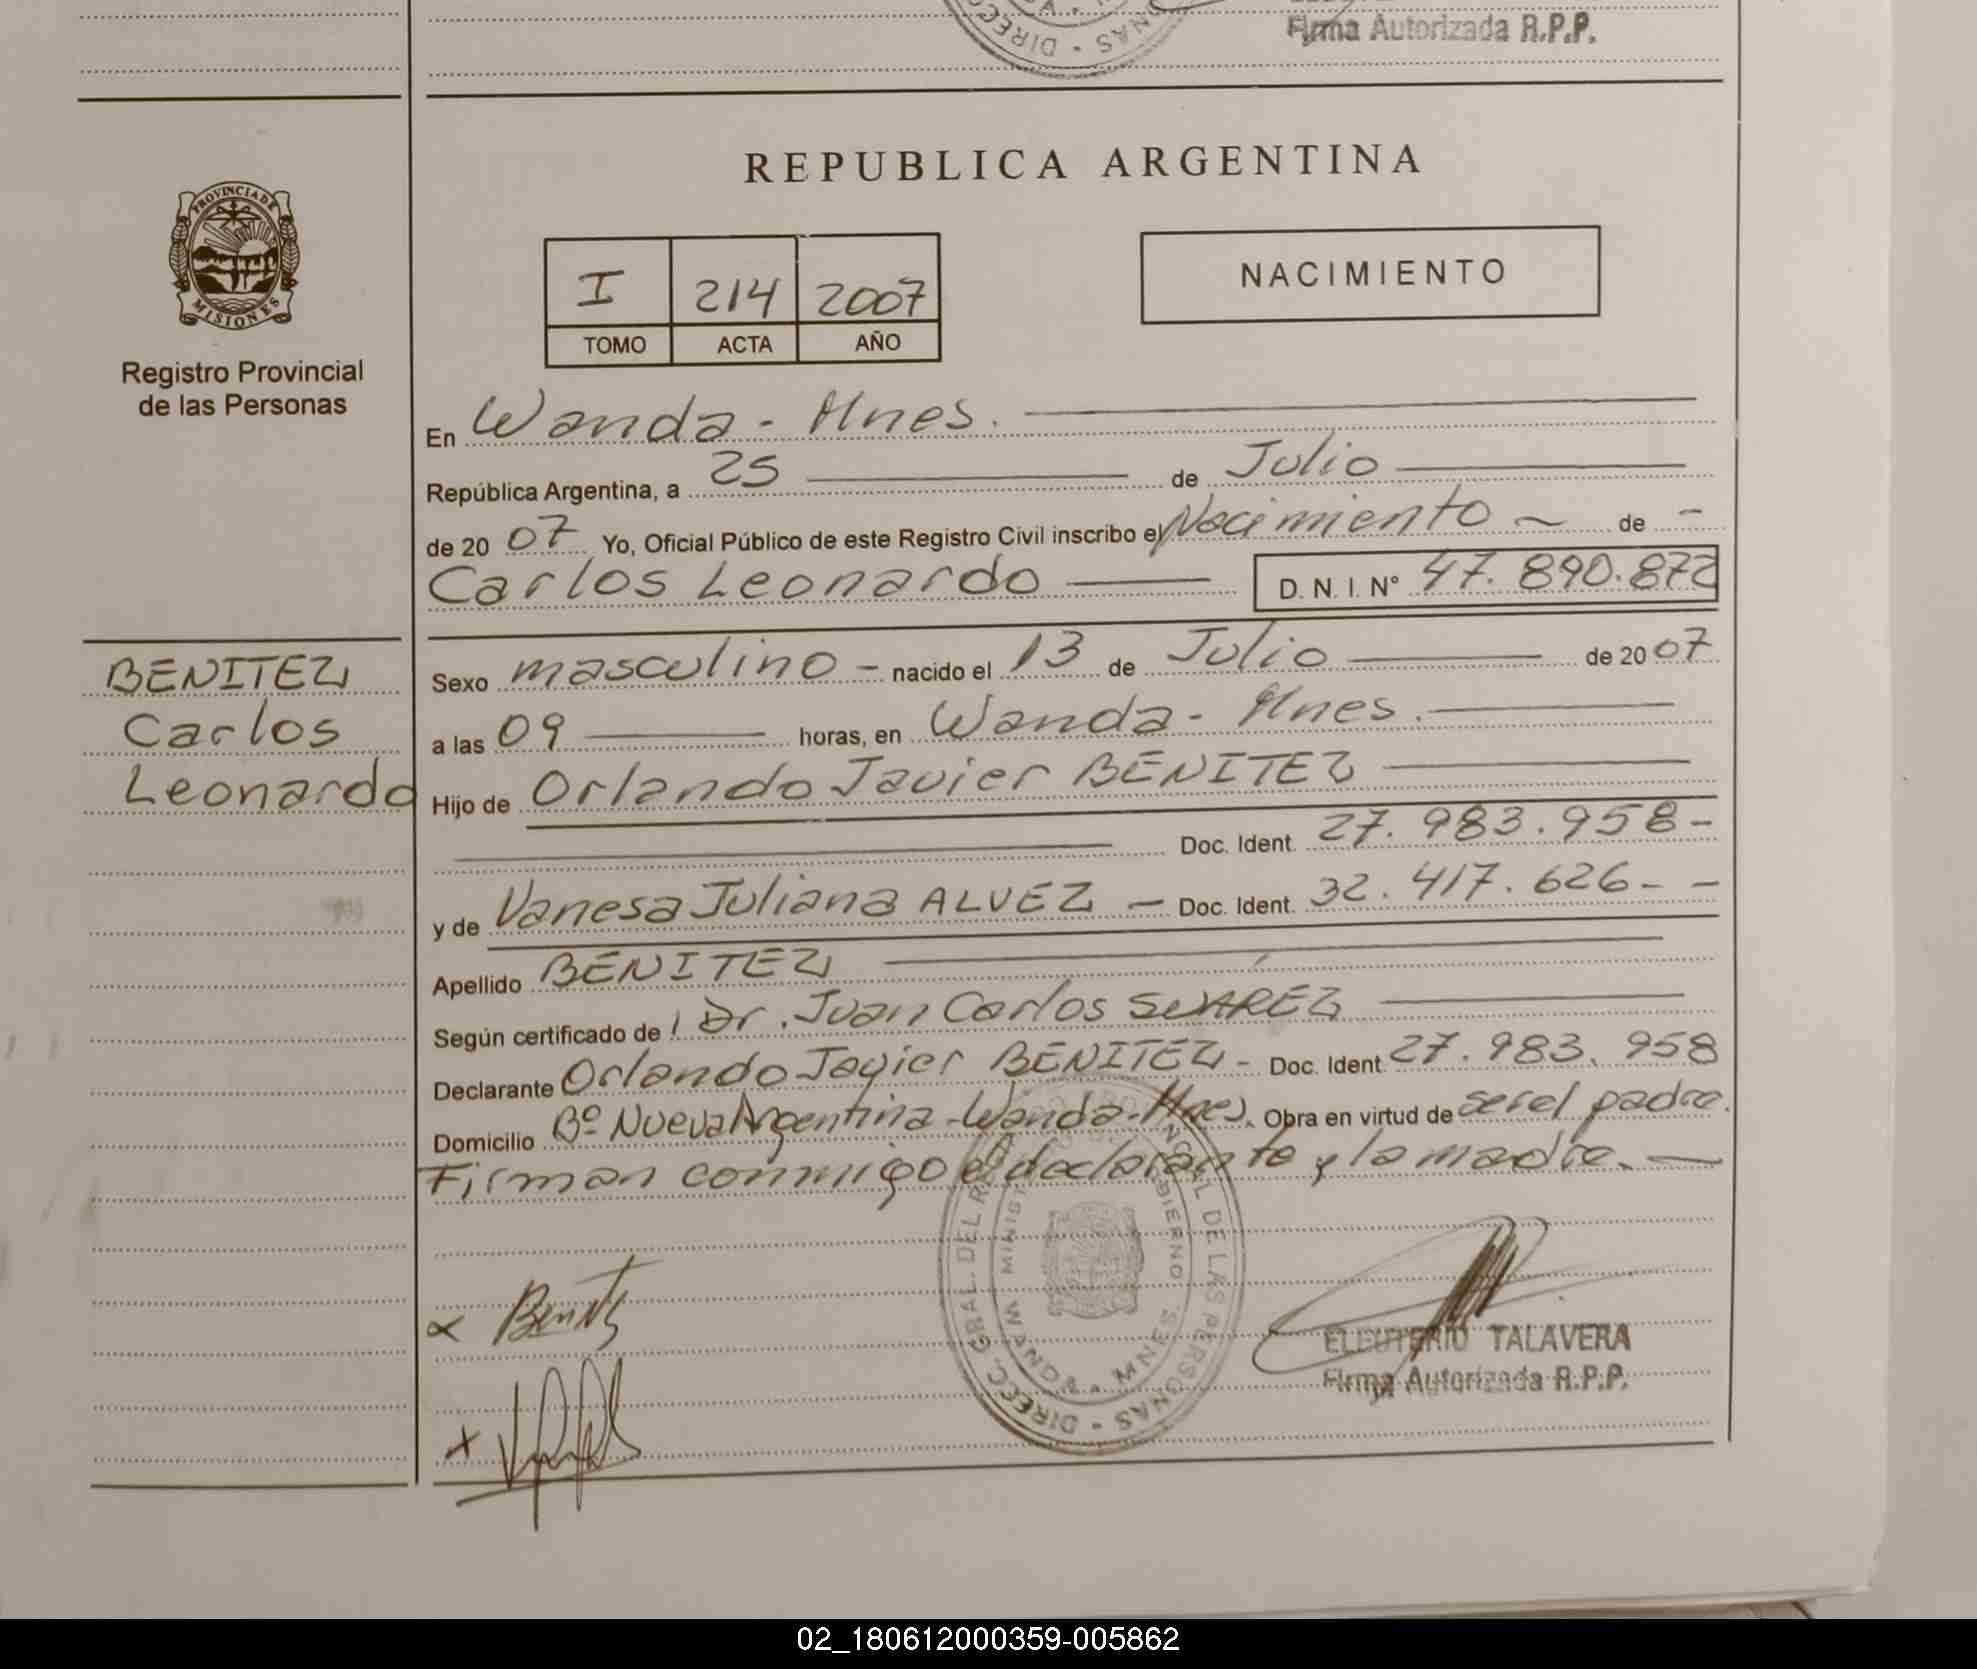 Firma Autorizada R.P.P.
DIRECC
NAS
REPUBLICA ARGENTINA
PROVINCIA DE
MISIONES
Registro Provincial
de las Personas
I 214 2007
TOMO ACTA AÑO
NACIMIENTO
En Wanda - Mnes.
República Argentina, a 25 de Julio
de 20 07 Yo, Oficial Público de este Registro Civil inscribo el Nacimiento de
Carlos Leonardo D.N.I. N° 47.890.872
BENITEZ
Carlos
Leonardo
Sexo masculino - nacido el 13 de Julio de 20 07
a las 09 horas, en Wanda - Mnes.
Hijo de Orlando Javier BENITEZ
Doc. Ident. 27.983.958-
y de Vanesa Juliana ALVEZ - Doc. Ident. 32.417.626- -
Apellido BENITEZ
Según certificado de l Dr. Juan Carlos SUAREZ
Declarante Orlando Javier BENITEZ - Doc. Ident. 27.983.958
Domicilio Bº Nueva Argentina - Wanda - Mnes. Obra en virtud de ser el padre.
Firman conmigo el declarante y la madre.
DIRECC. GRAL. DEL REG. PROVINCIAL DE LAS PERSONAS
WANDA - MNES
ELEUTERIO TALAVERA
Firma Autorizada R.P.P.
02_180612000359-005862